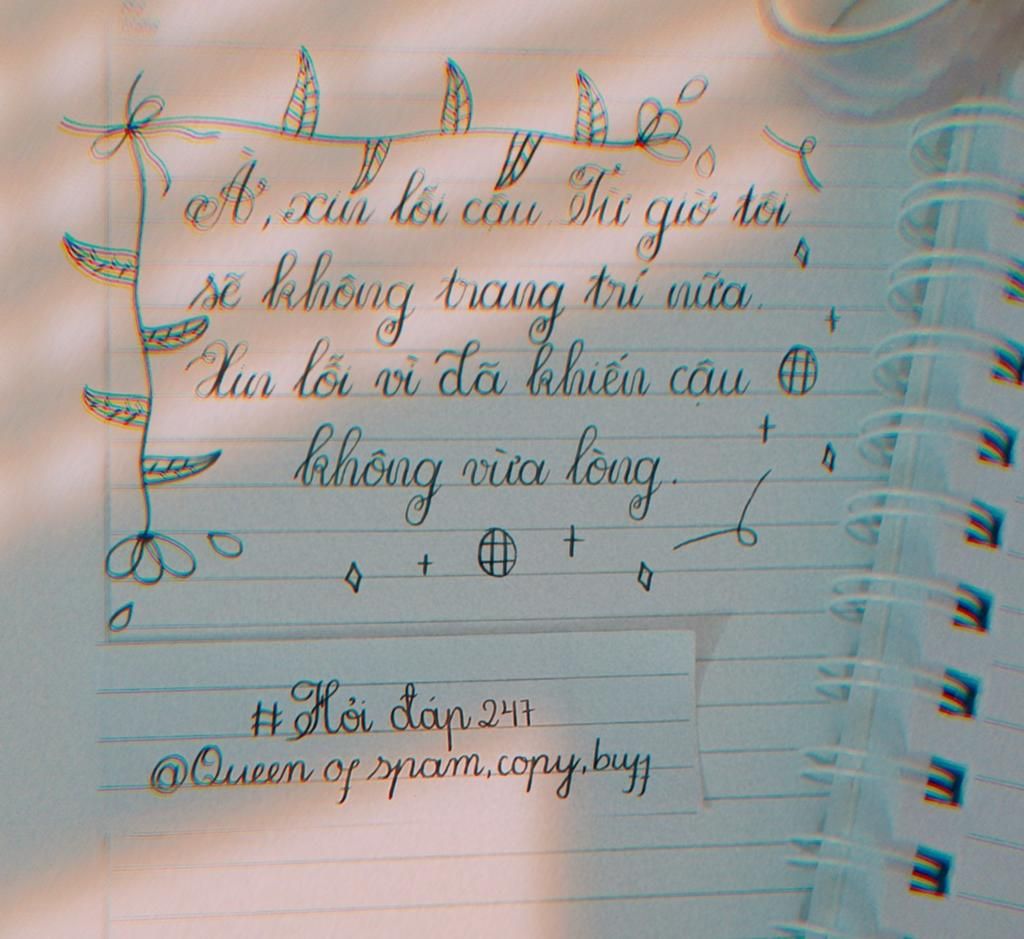 À, xin lỗi cậu. Từ giờ tôi
sẽ không trang trí nữa.
Xin lỗi vì đã khiến cậu
không vừa lòng.
#Hỏi đáp 247
@Queen of spam, copy, buff